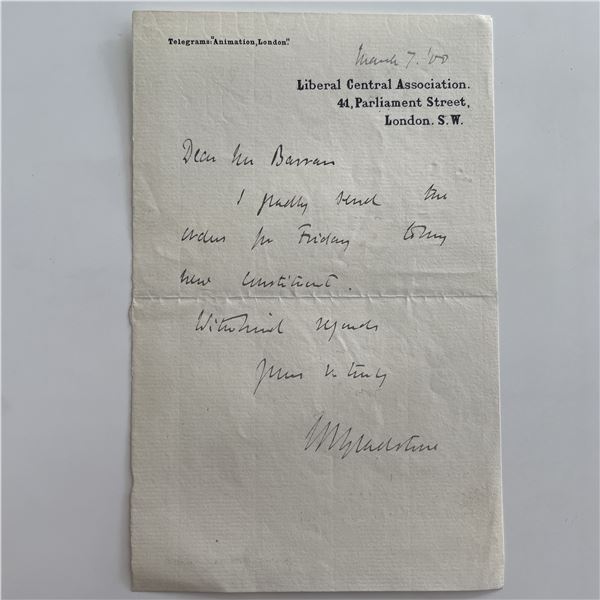 Telegrams: "Animation, London."
March 7. '00
Liberal Central Association.
41, Parliament Street,
London. S.W.
Dear Mr Barran
I gladly send the
orders for Friday to my
new constituent.
With kind regards
Yours v truly
Gladstone